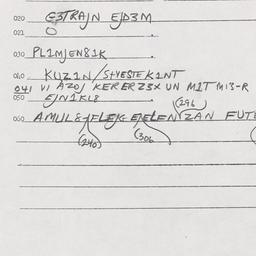 020 G3TRAJN EJD3M
021 O
030 PL1MJEN81K
040 KUZ1N/S+VESTEK1NT
041 VI AZO/ KERERZ3X UN M1T M13-R
050 EJN1KL8
(296)
060 AMUL8 FLEJG EJELEN ZAN FUT
(240) (306